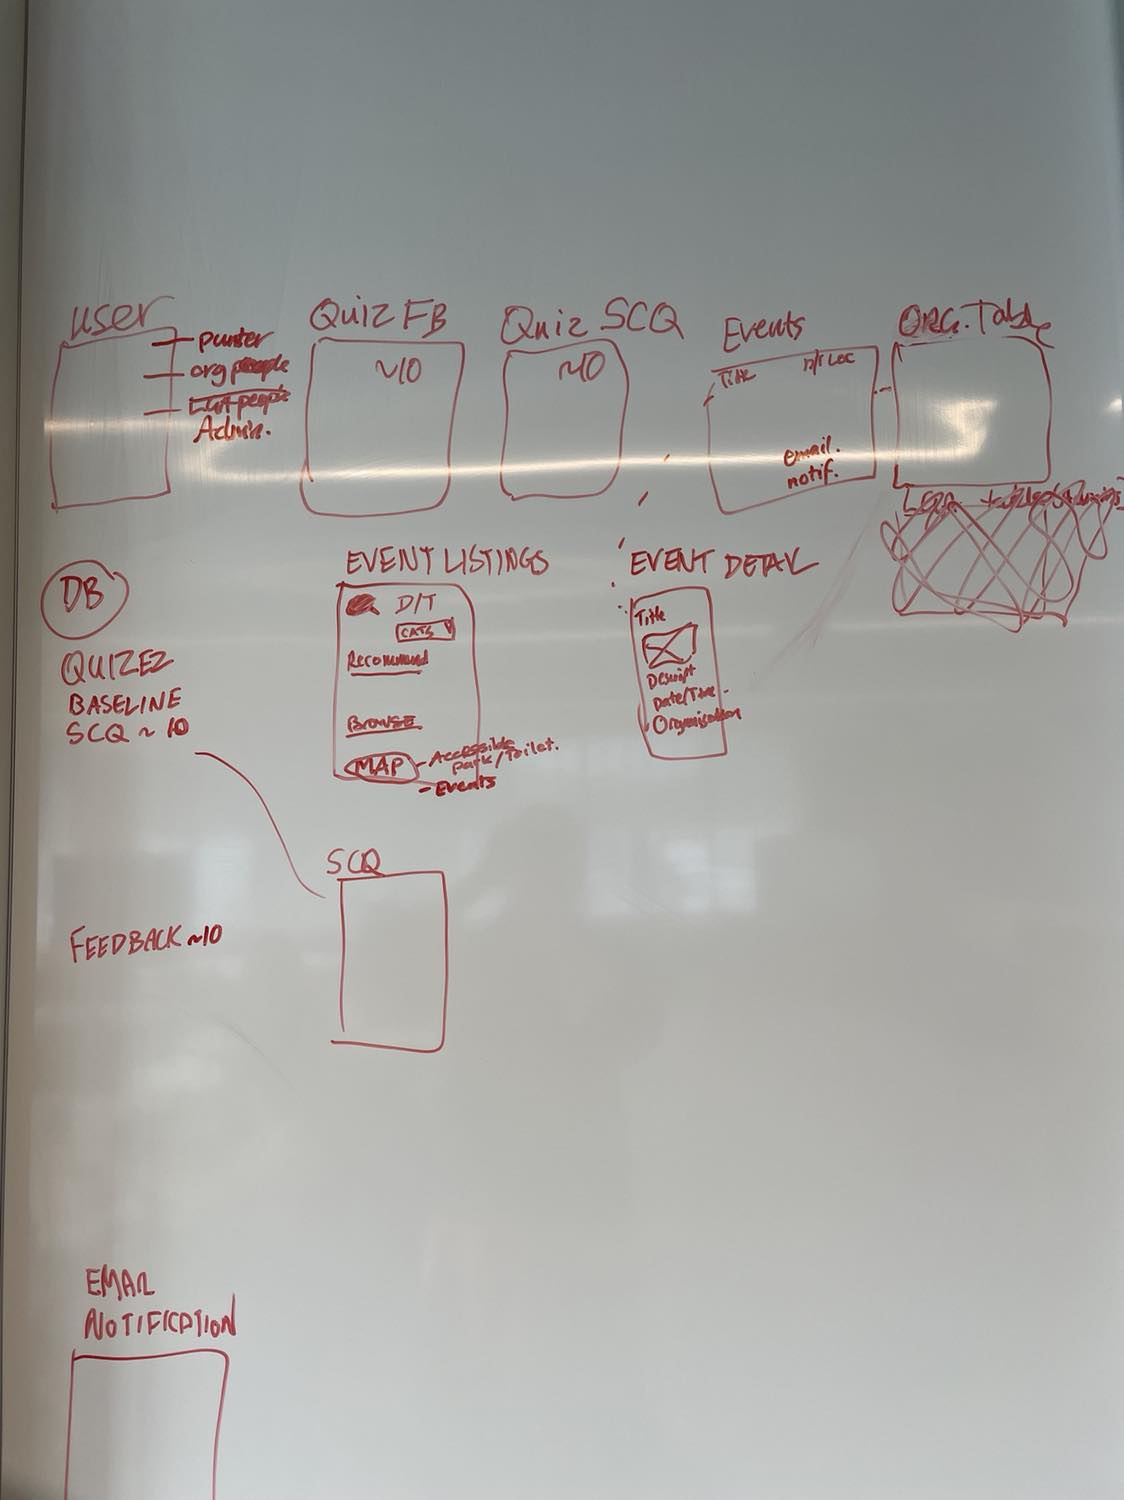 user
- punter
- org people
Admin.
Quiz FB
~10
Quiz SCQ
~10
Events
Title
D/T LOC
email.
notif.
ORG. Table
DB
QUIZEZ
BASELINE
SCQ ~ 10
EVENT LISTINGS
D/T
CATS
Recommend
BROWSE
MAP
- Accessible
park/Toilet.
- Events
EVENT DETAIL
Title
Descript
Date/Time
Organisation
SCQ
FEEDBACK ~10
EMAIL
NOTIFICATION